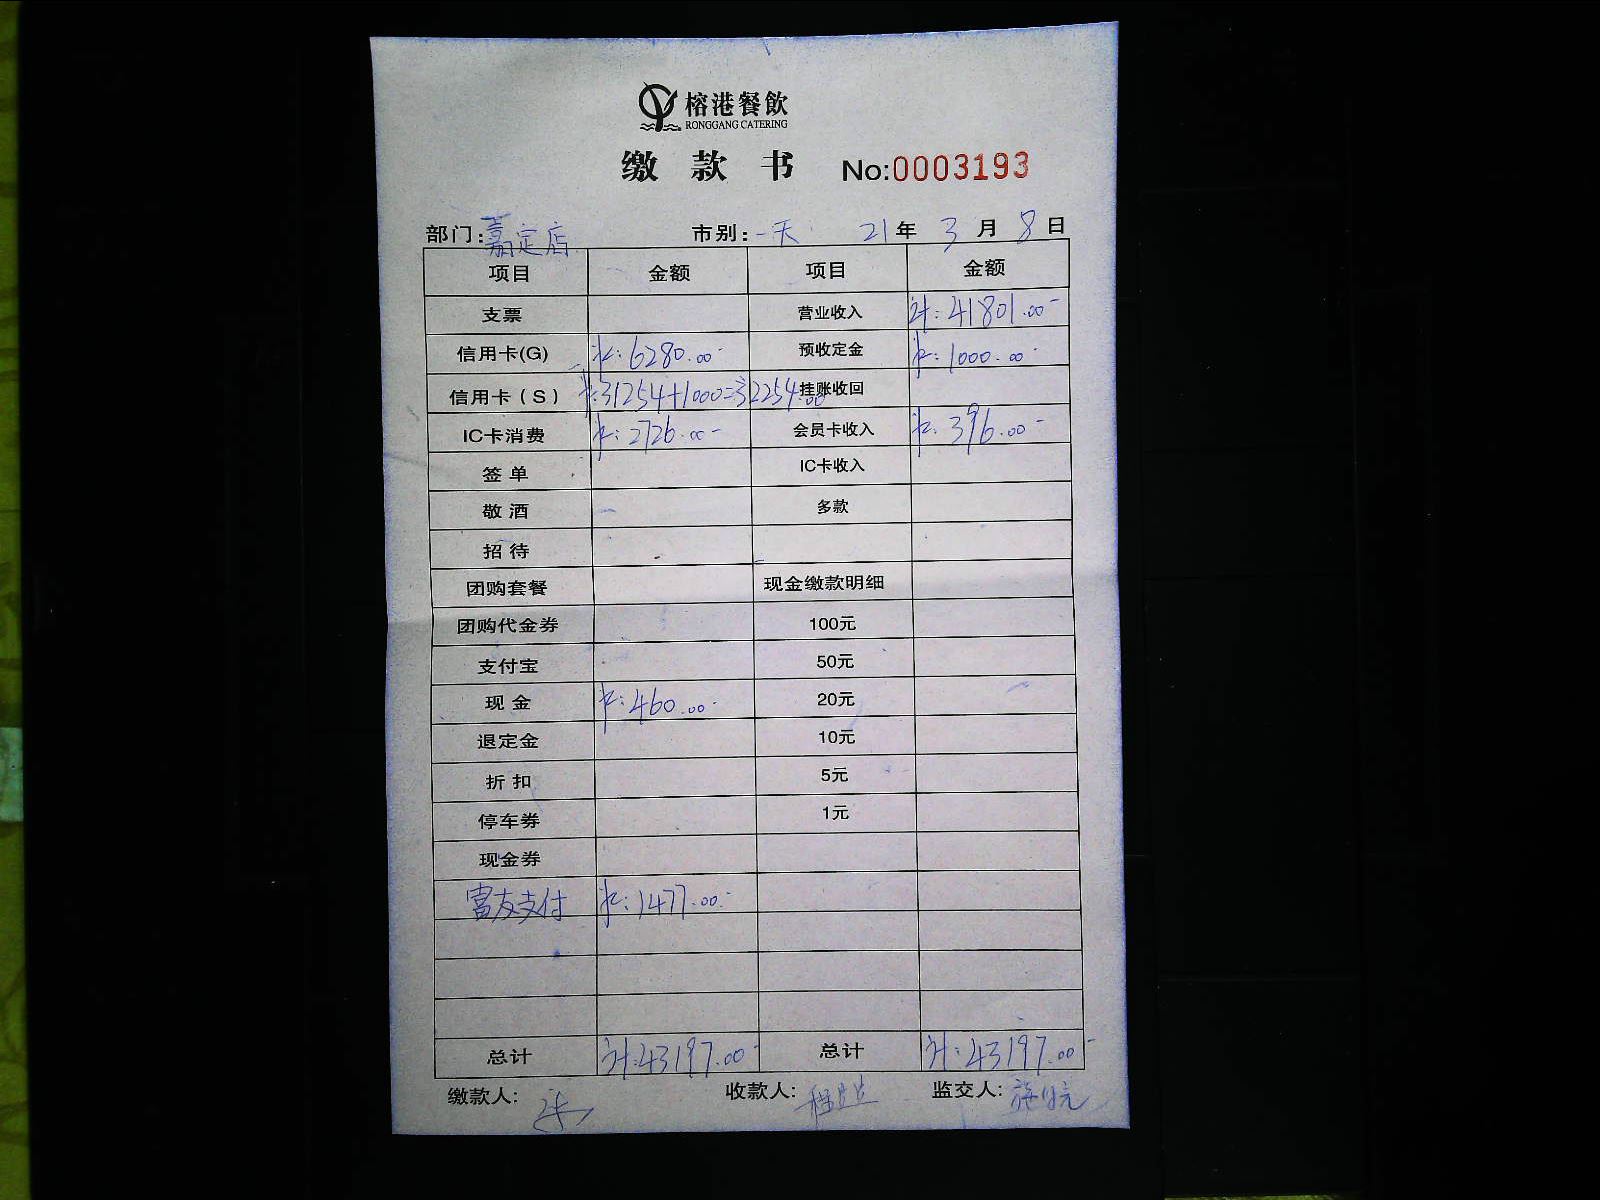 榕港餐飲
RONGGANG CATERING
缴款书 No:0003193
部门:嘉定店 市别:一天 21年3月8日
项目 金额 项目 金额
支票 营业收入 计:41801.00-
信用卡(G) 卡:6280.00- 预收定金 卡:1000.00-
信用卡(S) 卡:31254+1000=32254.00 挂账收回
IC卡消费 卡:2726.00- 会员卡收入 卡:396.00-
签单 IC卡收入
敬酒 多款
招待
团购套餐 现金缴款明细
团购代金券 100元
支付宝 50元
现金 卡:460.00- 20元
退定金 10元
折扣 5元
停车券 1元
现金券
富友支付 卡:1477.00-
总计 计:43197.00- 总计 计:43197.00-
缴款人: 收款人: 监交人: